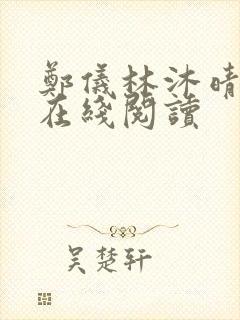 鄭儀林沐晴
在綫閱讀
吴楚轩